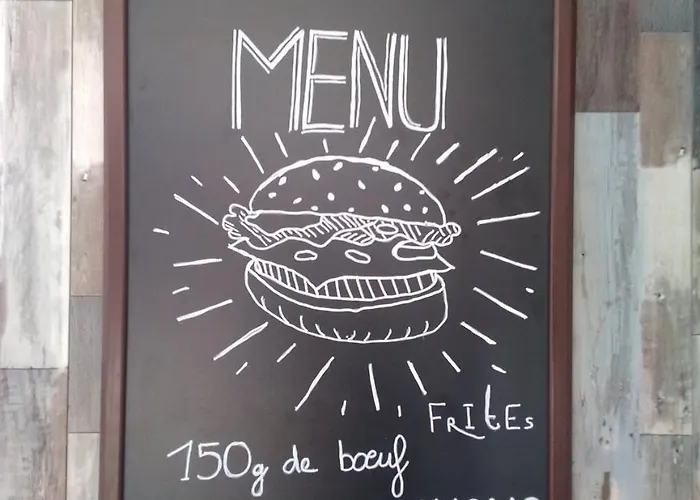 MENU
FRItEs
150g de bœuf